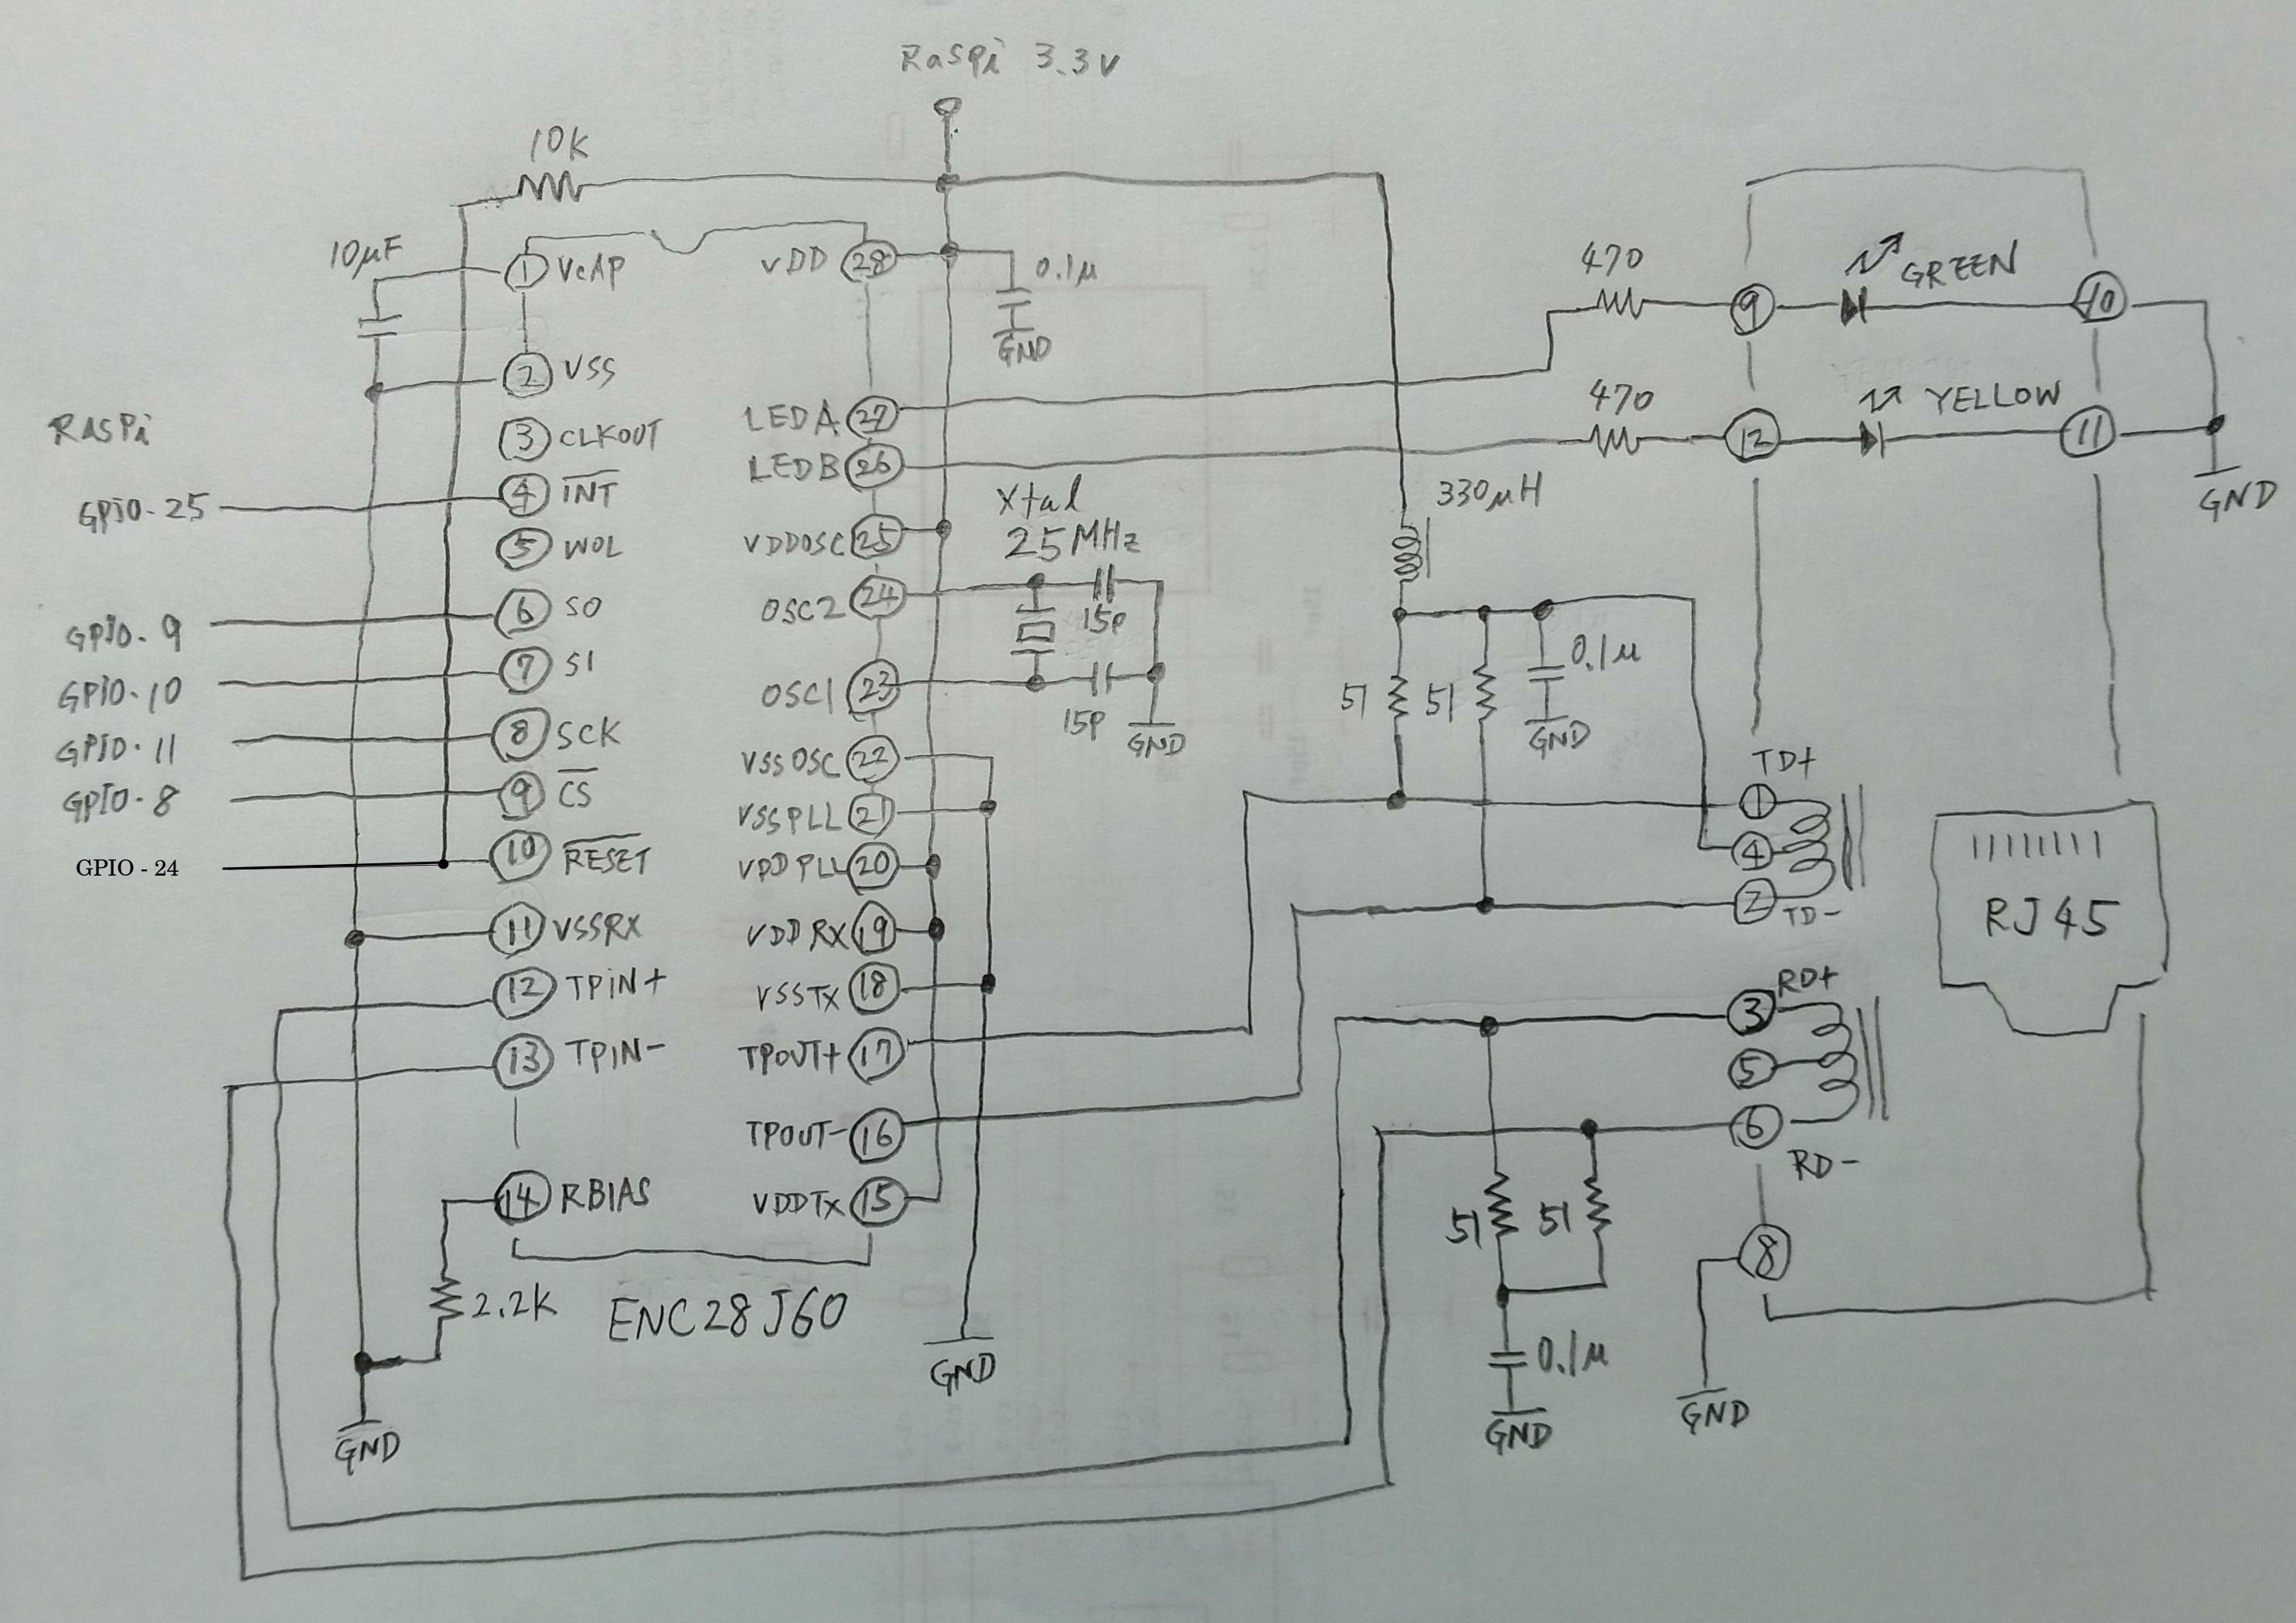 RasPi 3.3V
10K
10μF
① VCAP
VDD ㉘
0.1μ
GND
② VSS
RASPi
③ CLKOUT
LEDA ㉗
GPiO-25
④ INT
LEDB ㉖
⑤ WOL
VDDOSC ㉕
Xtal
25MHz
GPIO-9
⑥ SO
OSC2 ㉔
15P
GPIO-10
⑦ SI
OSC1 ㉓
15P
GND
GPIO-11
⑧ SCK
VSSOSC ㉒
GPIO-8
⑨ CS
VSSPLL ㉑
GPIO - 24
⑩ RESET
VDDPLL ⑳
⑪ VSSRX
VDDRX ⑲
⑫ TPiN+
VSSTX ⑱
⑬ TPiN-
TPOUT+ ⑰
TPOUT- ⑯
⑭ RBIAS
VDDTX ⑮
2.2K
ENC28J60
GND
GND
470
⑨
GREEN
⑩
470
⑫
YELLOW
⑪
GND
330μH
51
51
0.1μ
GND
TD+
①
④
②
TD-
RJ45
RD+
③
⑤
⑥
RD-
51
51
⑧
0.1μ
GND
GND